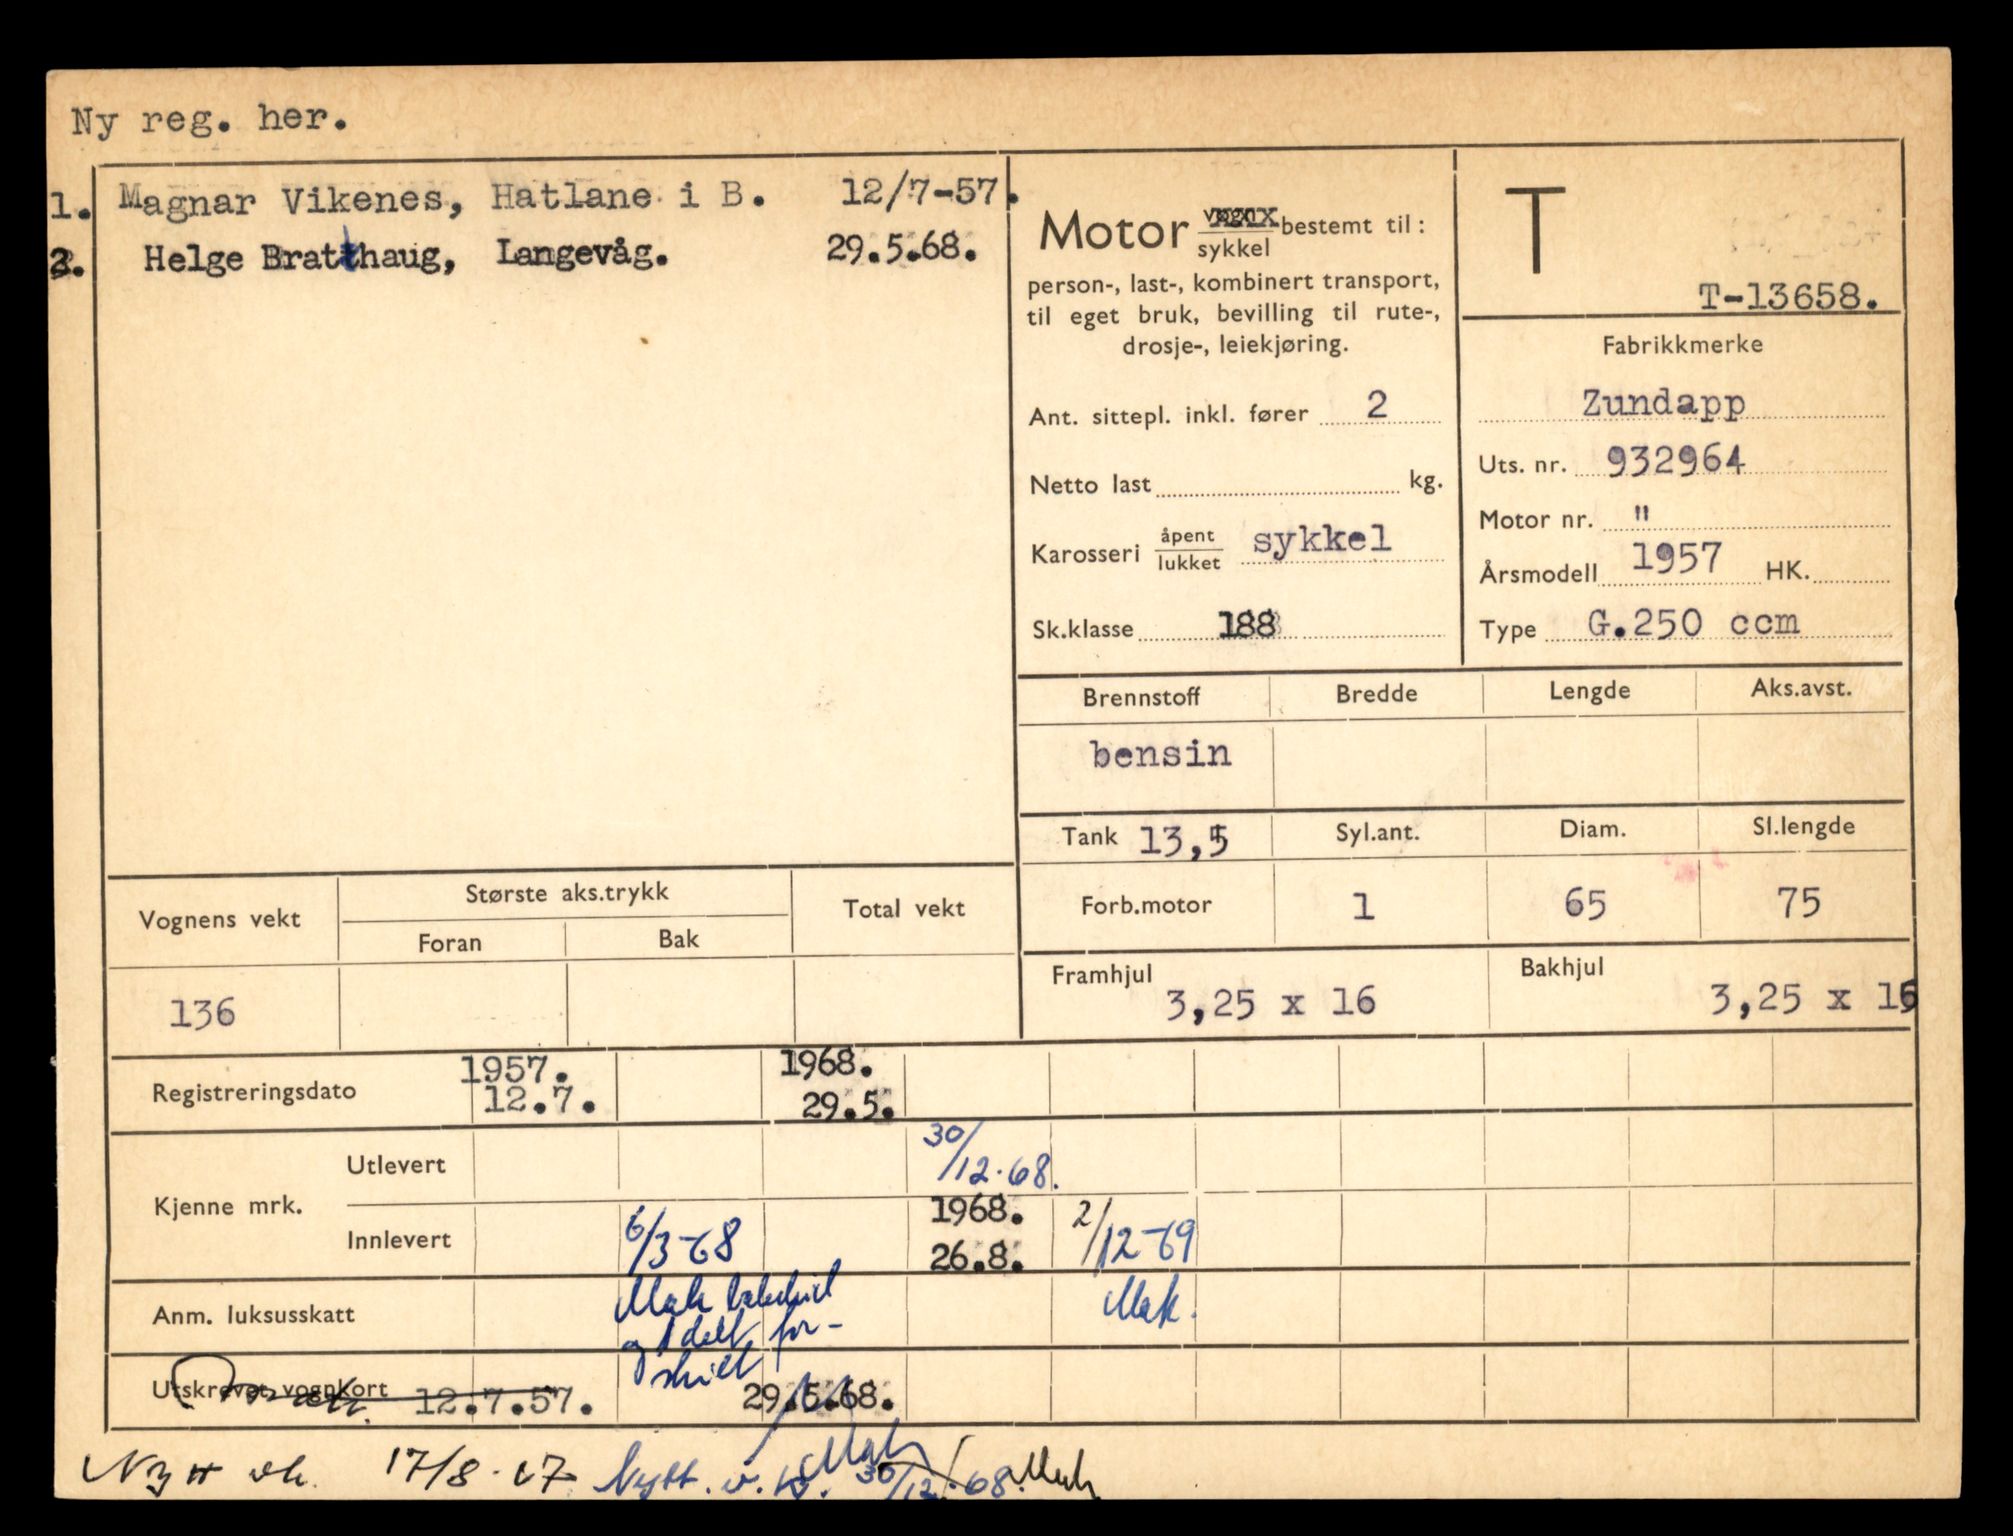 Ny reg. her.
1. Magnar Vikenes, Hatlane i B. 12/7-57.
2. Helge Bratthaug, Langevåg. 29.5.68.
Motor vogn
sykkel bestemt til:
person-, last-, kombinert transport,
til eget bruk, bevilling til rute-,
drosje-, leiekjøring.
Ant. sittepl. inkl. fører 2
Netto last kg.
Karosseri åpent
lukket sykkel
Sk.klasse 188
T
T-13658.
Fabrikkmerke
Zundapp
Uts. nr. 932964
Motor nr. "
Årsmodell 1957 HK.
Type G.250 ccm
Brennstoff Bredde Lengde Aks.avst.
bensin
Tank 13,5 Syl.ant. Diam. Sl.lengde
Forb.motor 1 65 75
Framhjul Bakhjul
3,25 x 16 3,25 x 16
Vognens vekt Største aks.trykk Total vekt
Foran Bak
136
Registreringsdato 1957. 1968.
12.7. 29.5.
Kjenne mrk. Utlevert 30/12.68.
Innlevert 6/3-68 1968. 2/12-69
26.8.
Anm. luksusskatt Mak bakskilt Mak.
og 1 delt for-
skilt
Utskrevet vognkort 12.7.57. 29.5.68.
Nytt vk. 17/8.67 Nytt. v.k. 30/12.68. Mak
Mak